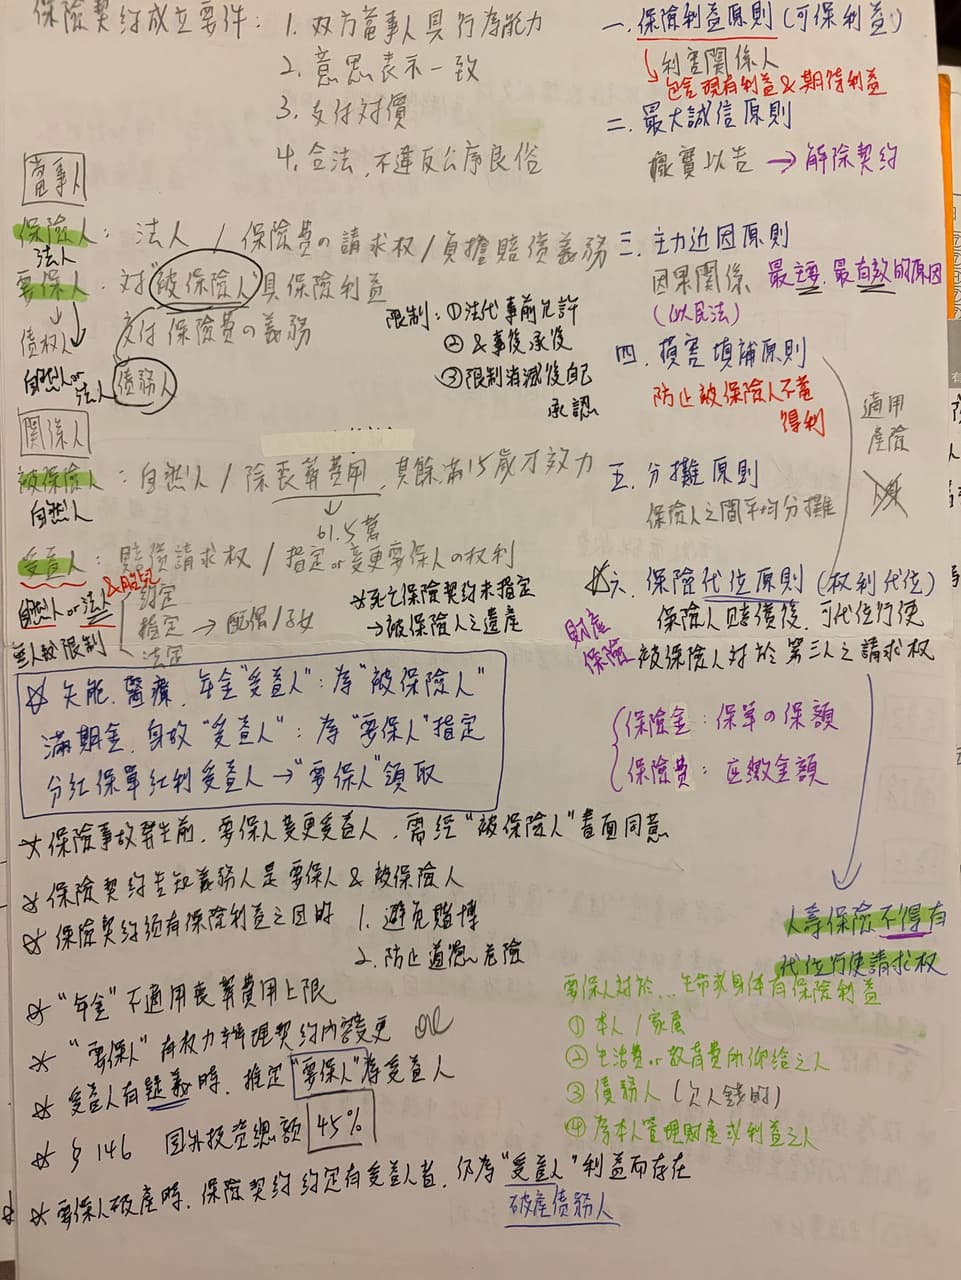 保險契約成立要件： 1. 双方當事人具行為能力
2. 意思表示一致
3. 支付対價
4. 合法、不違反公序良俗
當事人
保險人： 法人 / 保險費の請求权 / 負擔賠償義務
法人
要保人： 対"被保險人"具保險利益
交付保險費の義務
債权人
自然人or法人
債務人
限制：①法代事前允許
②&事後承認
③限制消滅後自己
承認
關係人
被保險人：自然人 / 除喪葬費用，其餘滿15歲才效力
自然人
61.5萬
受益人： 賠償請求权 / 指定or変更要保人の权利
&胎兒
自然人or法人
無人數限制
約定
指定 → 配偶/子女
法定
*死亡保險契約未指定
→被保險人之遺產
☆失能、醫療、年金"受益人"：為"被保險人"
滿期金、身故"受益人"：為"要保人"指定
分紅保單紅利受益人→"要保人"領取
☆保險事故發生前，要保人変更受益人，需經"被保險人"書面同意
☆保險契約告知義務人是要保人&被保險人
☆保險契約須有保險利益之目的 1. 避免賭博
2. 防止道德危險
☆"年金"不適用喪葬費用上限
☆"要保人"有权力辦理契約內容変更
☆受益人有疑義時，推定"要保人"為受益人
☆§146 國外投資總額 45%
☆要保人破產時，保險契約約定有受益人者，仍為"受益人"利益而存在
破產債務人
一、保險利益原則（可保利益）
利害關係人
包含現有利益&期待利益
二、最大誠信原則
據實以告 → 解除契約
三、主力近因原則
因果關係 最主要、最有效的原因
（似民法）
四、損害填補原則
防止被保險人不當
得利
五、分攤原則
保險人之間平均分攤
適用
產險
☆六、保險代位原則（权利代位）
保險人賠償後，可代位行使
財產
保險
被保險人対於第三人之請求权
保險金：保單の保額
保險費：应繳金額
人壽保險不得有
代位行使請求权
要保人対於…生命或身体有保險利益
①本人/家屬
②生活費or教育費所仰給之人
③債務人（欠人錢的）
④為本人管理財產或利益之人